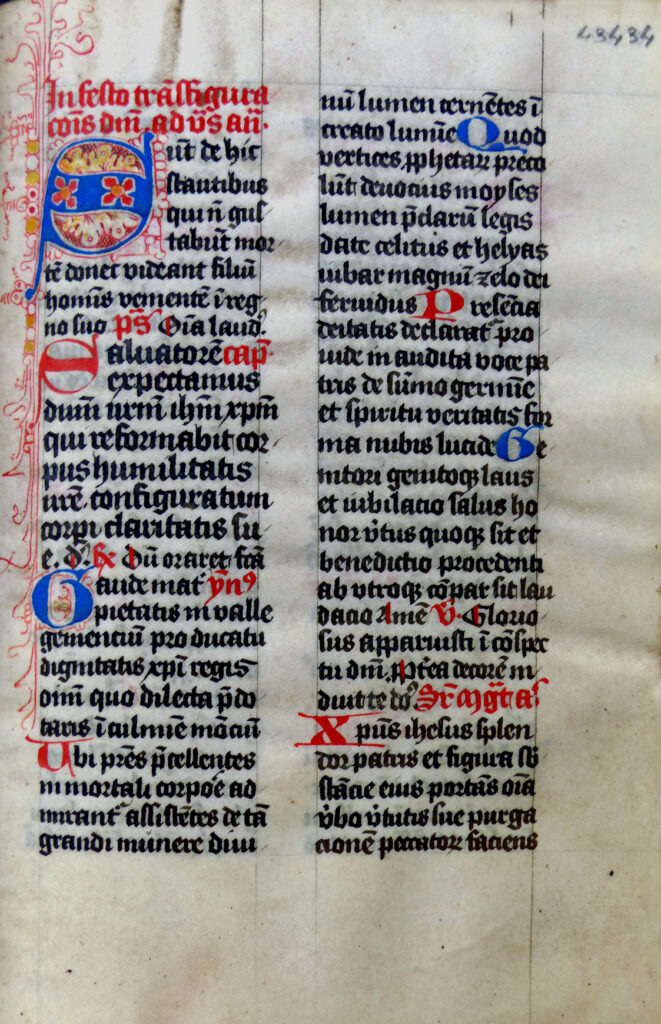 43434
In festo trāsfigura
cōis dn̄i. ad vs̄ an̄.
Sūt de hic
stantibus
qui n̄ gus
tabūt mor
tē donec videant filiū
hominis venientē ī reg
no suo ps̄ Oīa laudꝫ.
Saluatorē cap̄.
expectamus
dn̄m nr̄m ihm̄ xpm̄
qui reformabit cor
pus humilitatis
nr̄e configuratum
corp̄i claritatis su
e. d̄. Rx Dū oraret fc̄ā
Gaude mat̄ yn9
pietatis in valle
gemenciū pro ducatu
dignitatis xp̄i regis
oīm quo dilecta p̄do
taris ī culmīe mōciū
Ubi prēs p̄cellentes
in mortali corpoē ad
mirant᷑ assistētes de tā
grandi munere diui
nū lumen cernētes ī
creato lumīe Quod
vertices ꝓphetaꝝ preco
lūt deuocius moyses
lumen p̄clarū legis
date celitus et helyas
iubar magnū zelo dei
feruidus Presēcia
deitatis declarat᷑ pro
inde in audita voce pa
tris de sūmo germīe
et spiritu veritatis for
ma nubis lucide Ge
nitori genitoqꝫ laus
et iubilacio salus ho
nor v̄tus quoqꝫ sit et
benedictio procedenti
ab vtroqꝫ cōpar sit lau
dacio Amē v̄. Glorio
sus apparuisti ī cōspec
tu dn̄i. ꝓptēa decorē in
duit te do9. Sr̄ mḡt an̄
Xpūs ihesus splen
dor patris et figura sb̄
stācie eius portās oīa
v̄bo v̄tutis sue purga
cionē peccatoꝝ faciens